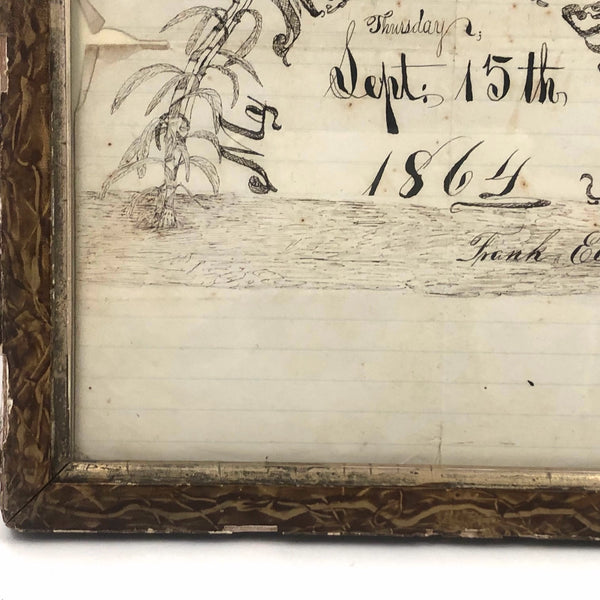 My
Thursday,
Sept: 15th,
1864
Frank